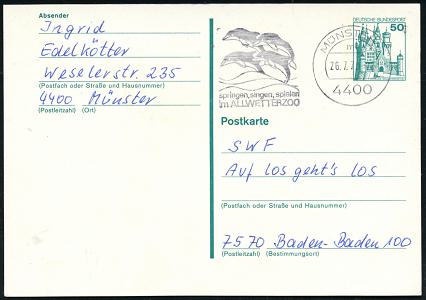 Absender
Ingrid
Edelkötter
Weselerstr. 235
(Postfach oder Straße und Hausnummer)
4400 Münster
(Postleitzahl) (Ort)
springen, singen, spielen
im ALLWETTERZOO
4400
DEUTSCHE BUNDESPOST
50
Postkarte
SWF
Auf los geht's los
(Postfach oder Straße und Hausnummer)
7570 Baden-Baden 100
(Postleitzahl) (Bestimmungsort)